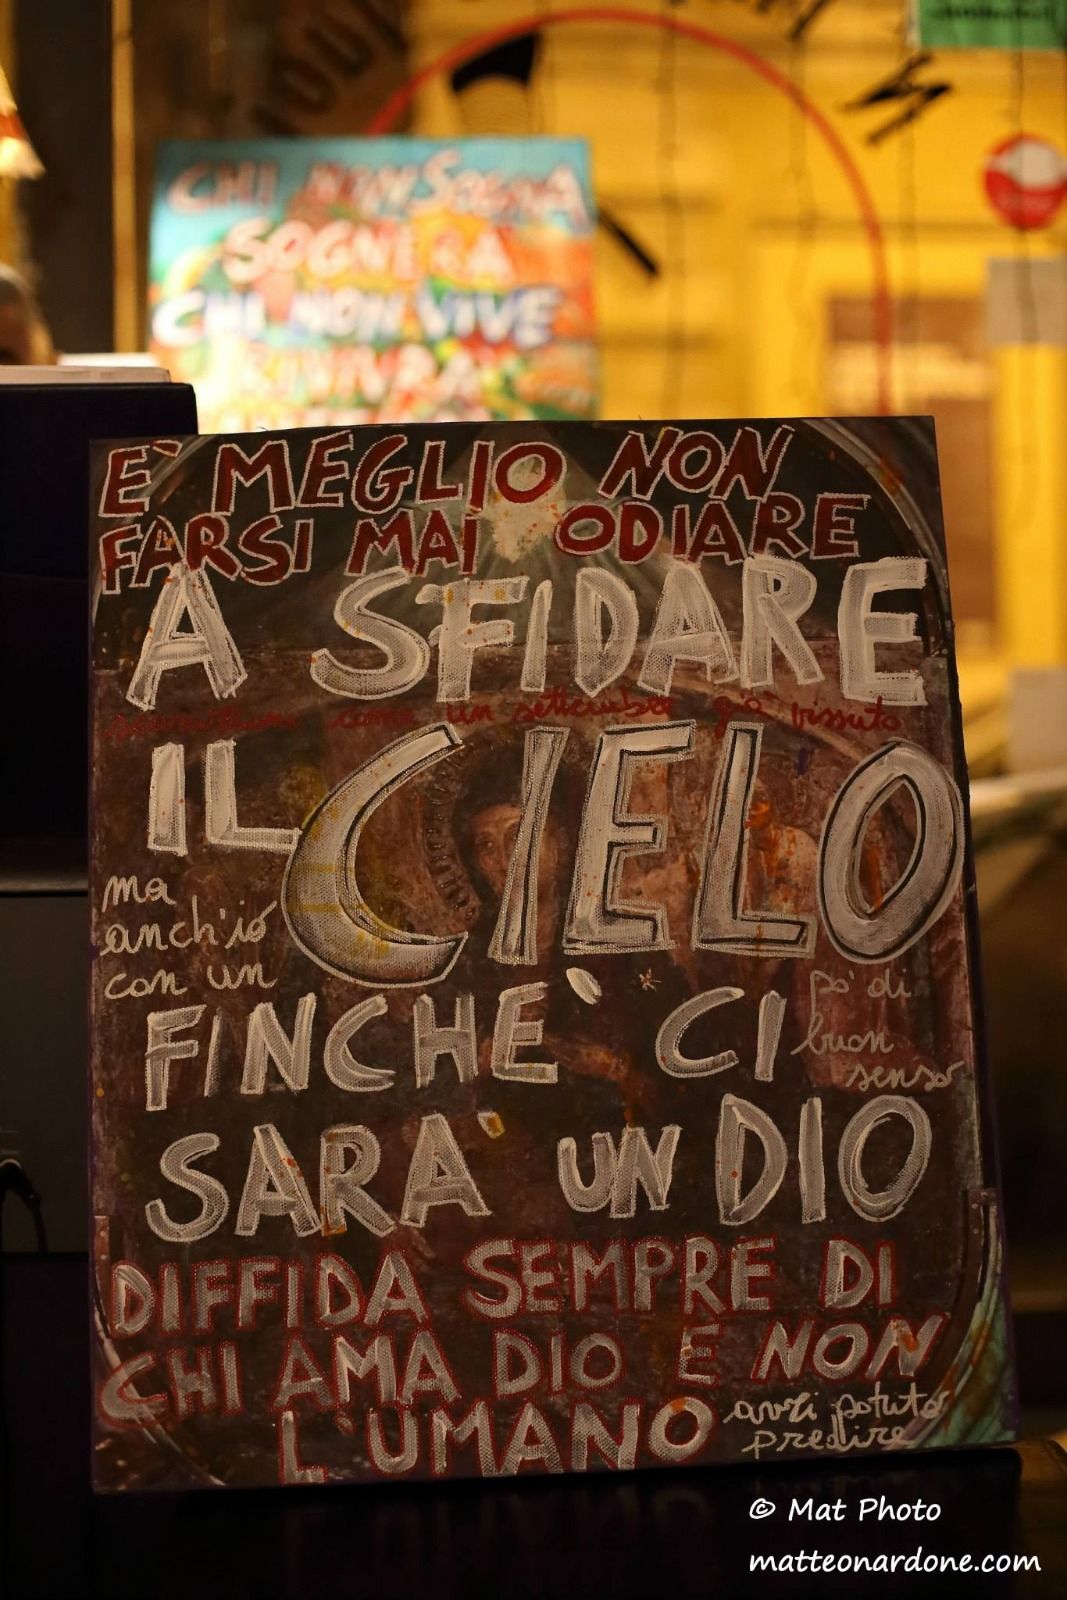 CHI NON SOGNA
SOGNERA
CHI NON VIVE
RIVIVRA
E` MEGLIO NON
FARSI MAI ODIARE
A SFIDARE
come un settembre già vissuto
IL CIELO
ma
anch'io
con un
po' di
buon
senso
FINCHE` CI
SARA` UN DIO
DIFFIDA SEMPRE DI
CHI AMA DIO E NON
L'UMANO
avrei potuto
predire
© Mat Photo
matteonardone.com